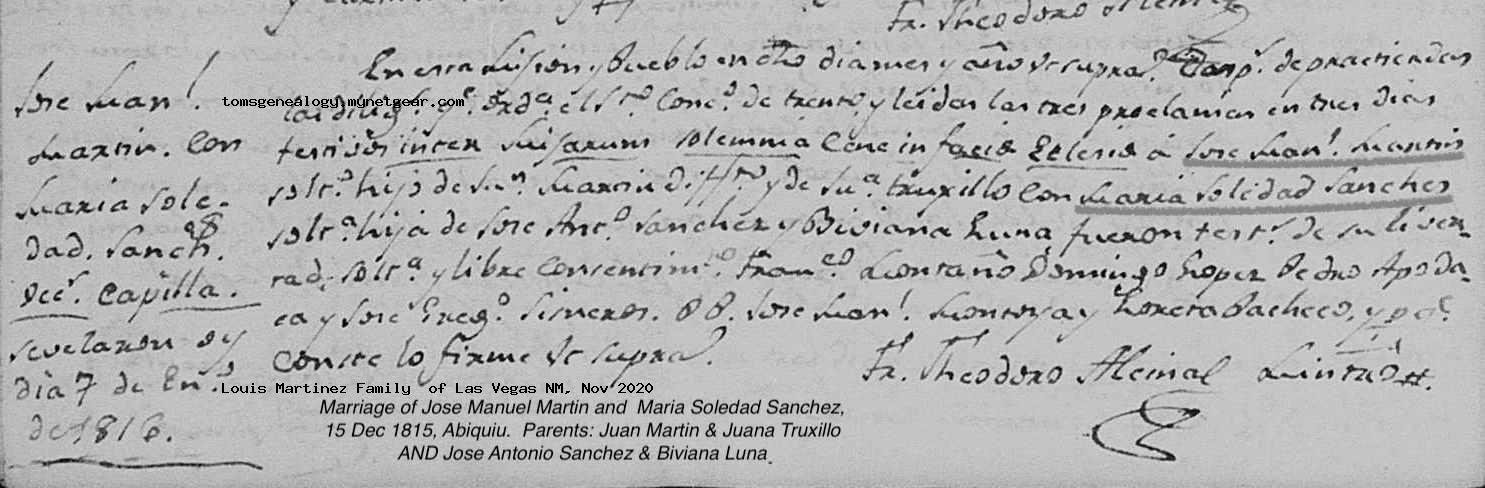 Fr. Theodoro Alcina
Jose Man.l
Martin. Con
Maria Sole-
dad. Sanch.s
Vec.s Capilla.
se velaron oy
dia 7 de En.o
de 1816.
En esta Mision y Pueblo en dho dia mes y año Vt supra. de practicadas
las dilig.s q.e ord.a el S.to Conc.o de trento, y leidas las tres proclamas en tres dias
festivos inter Misarum solemnia Case in facie Eclesie á Jose Man.l Martin
solt.o hijo de Ju.n Martin diff.to y de Ju.a truxillo Con Maria Soledad Sanches
solt.a hija de Jose Ant.o Sanchez y Biviana Luna fueron test.s de su liver-
tad, solt.a y libre Consentim.to Fran.co Montaño Domingo Lopez Pedro Apoda-
ca y Jose Greg.o Sisneros. PP. Jose Man.l Montoya y Loreta Pacheco, y p.a q.e
Conste lo firme Vt supra.
Fr. Theodoro Alcina Mintro
tomsgenealogy.mynetgear.com
Louis Martinez Family of Las Vegas NM, Nov 2020
Marriage of Jose Manuel Martin and Maria Soledad Sanchez,
15 Dec 1815, Abiquiu. Parents: Juan Martin & Juana Truxillo
AND Jose Antonio Sanchez & Biviana Luna